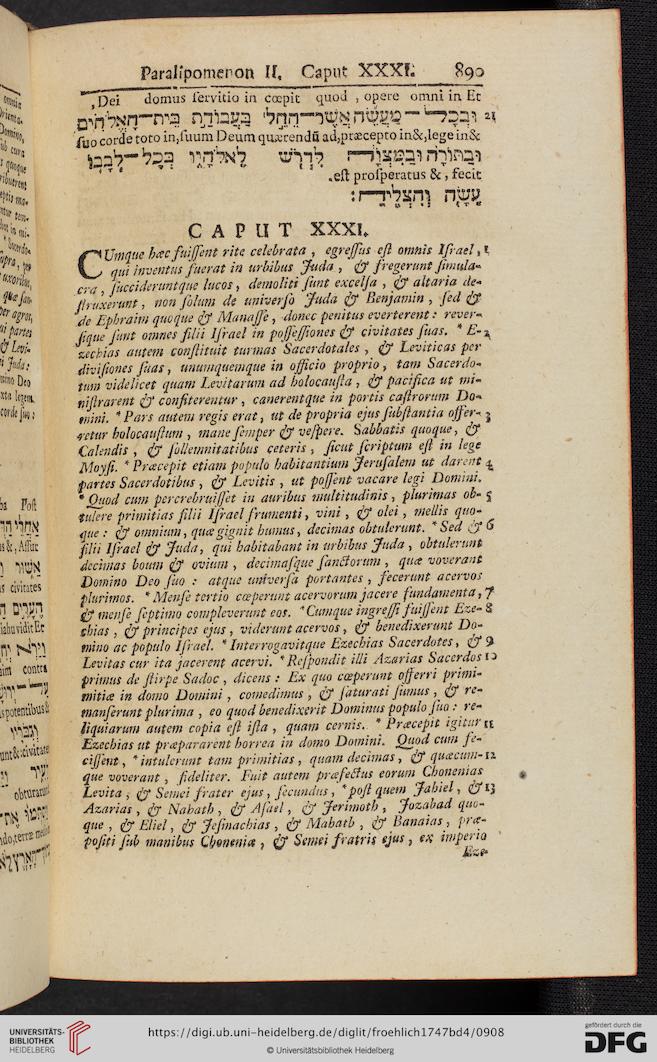 Paralipomenon II. Caput XXXI. 890
Dei domus servitio in cœpit quod , opere omni in Et
וּבְכָל־מַעֲשֶׂה אֲשֶׁר־הֵחֵל בַּעֲבוֹדַת בֵּית־הָאֱלֹהִים 21
ſuo corde toto in,ſuum Deum quærendū ad,præcepto in&,lege in&
וּבַתּוֹרָה וּבַמִּצְוָה לִדְרֹשׁ לֵאלֹהָיו בְּכָל־לְבָבוֹ
.eſt proſperatus & , fecit
עָשָׂה וְהִצְלִיחַ׃
CAPUT XXXI.
CUmque hæc fuiſſent rite celebrata , egreſſus eſt omnis Iſrael , 1
qui inventus fuerat in urbibus Juda , & fregerunt ſimula-
cra , ſuccideruntque lucos , demoliti ſunt excelſa , & altaria de-
ſtruxerunt , non ſolum de univerſo Juda & Benjamin , ſed &
de Ephraim quoque & Manaſſe , donec penitus everterent : rever-
ſique ſunt omnes filii Iſrael in poſſeſſiones & civitates ſuas. * E- 2
zechias autem conſtituit turmas Sacerdotales , & Leviticas per
diviſiones ſuas , unumquemque in officio proprio , tam Sacerdo-
tum videlicet quam Levitarum ad holocauſta , & pacifica ut mi-
niſtrarent & confiterentur , canerentque in portis caſtrorum Do-
mini. * Pars autem regis erat , ut de propria ejus ſubſtantia offer- 3
retur holocauſtum , mane ſemper & veſpere. Sabbatis quoque , &
Calendis , & ſollemnitatibus ceteris , ſicut ſcriptum eſt in lege
Moyſi. * Præcepit etiam populo habitantium Jeruſalem ut darent 4
partes Sacerdotibus , & Levitis , ut poſſent vacare legi Domini.
* Quod cum percrebruiſſet in auribus multitudinis , plurimas ob- 5
tulere primitias filii Iſrael frumenti , vini , & olei , mellis quo-
que : & omnium, quæ gignit humus, decimas obtulerunt. * Sed & 6
filii Iſrael & Juda, qui habitabant in urbibus Juda , obtulerunt
decimas boum & ovium , decimaſque ſanctorum , quæ voverant
Domino Deo ſuo : atque univerſa portantes , fecerunt acervos
plurimos. * Menſe tertio cœperunt acervorum jacere fundamenta, 7
& menſe ſeptimo compleverunt eos. * Cumque ingreſſi fuiſſent Eze- 8
chias , & principes ejus , viderunt acervos , & benedixerunt Do-
mino ac populo Iſrael. * Interrogavitque Ezechias Sacerdotes, & 9
Levitas cur ita jacerent acervi. * Reſpondit illi Azarias Sacerdos 10
primus de ſtirpe Sadoc , dicens : Ex quo cœperunt offerri primi-
mitiæ in domo Domini , comedimus , & ſaturati ſumus , & re-
manſerunt plurima , eo quod benedixerit Dominus populo ſuo : re-
liquiarum autem copia eſt iſta , quam cernis. * Præcepit igitur 11
Ezechias ut præpararent horrea in domo Domini. Quod cum fe-
ciſſent , * intulerunt tam primitias , quam decimas , & quæcum- 12
que voverant , fideliter. Fuit autem præfectus eorum Chonenias
Levita , & Semei frater ejus , ſecundus , * poſt quem Jahiel , & 13
Azarias , & Nahath , & Aſael , & Jerimoth , Jozabad quo-
que , & Eliel , & Jeſmachias , & Mahath , & Banaias , præ-
poſiti ſub manibus Choneniæ , & Semei fratris ejus , ex imperio
Eze-
UNIVERSITÄTS-
BIBLIOTHEK
HEIDELBERG
https://digi.ub.uni-heidelberg.de/diglit/froehlich1747bd4/0908
© Universitätsbibliothek Heidelberg
gefördert durch die
DFG